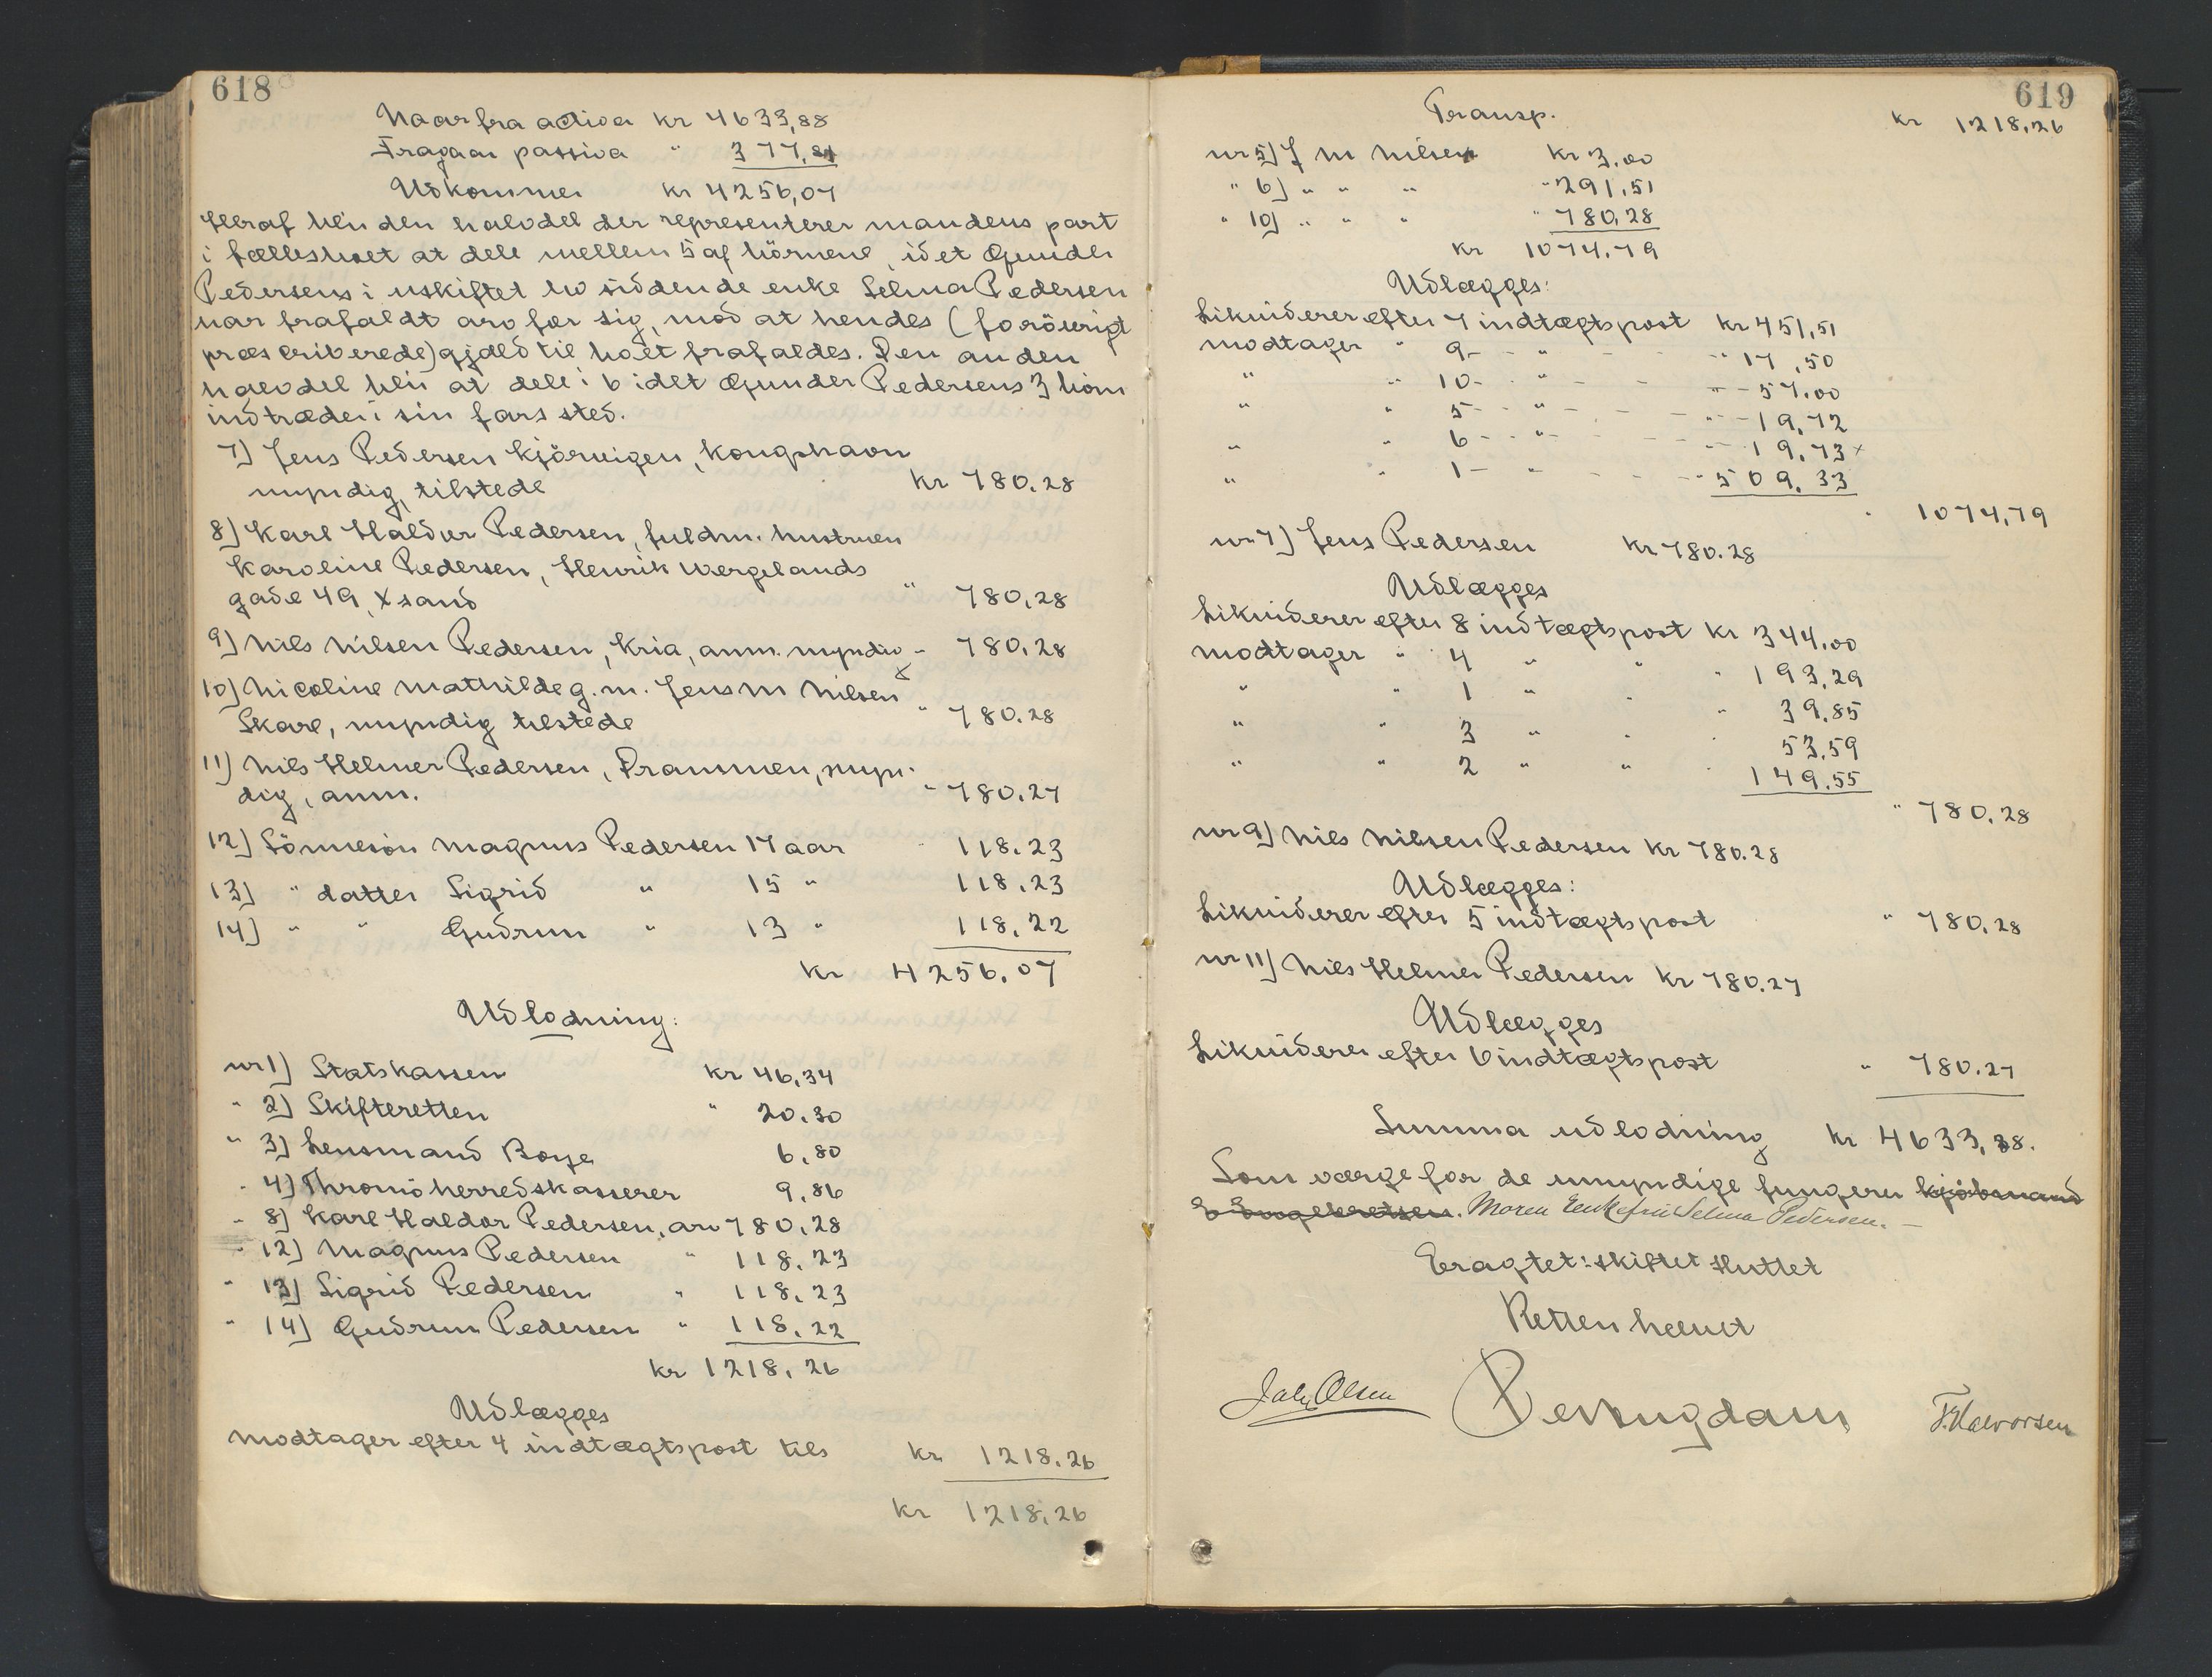 618
Naar fra activa kr 4633,88
Fragaar passiva " 377,81
Udkommer kr 4256,07
Heraf blir den halvdel der representerer mandens part
i fællesboet at dele mellem 5 af börnene, idet Gunder
Pedersens i uskiftet bo siddende enke Selma Pedersen
har frafaldt arv for sig, mod at hendes (forövrigt
præscriberede) gjæld til boet frafaldes. Den anden
halvdel blir at dele i 6 idet Gunder Pedersens 3 börn
indtræder i sin fars sted.
7) Jens Pedersen Kjörvigen, Kongshavn
myndig, tilstede kr 780.28
8) Karl Haldor Pedersen, fuldm. hustruen
Karoline Pedersen, Henrik Wergelands
gade 49, Xsand " 780,28
9) Nils Nilsen Pedersen, Kria, anm. myndig " 780,28
10) Nicoline Mathilde g. m. Jens M Nilsen
Skare, myndig tilstede " 780.28
11) Nils Helmer Pedersen, Drammen, myn-
dig, anm. " 780.27
12) Sönnesön Magnus Pedersen 17 aar " 118.23
13) " datter Sigrid " 15 " 118,23
14) " " Gudrun " 13 " 118,22
kr 4256.07
Udlodning:
nr 1) Statskassen kr 46,34
" 2) Skifteretten " 20.30
" 3) Lensmand Boye 6,80
" 4) Thromö herredskasserer 9,86
" 8) Karl Haldor Pedersen, arv 780,28
" 12) Magnus Pedersen " 118,23
" 13) Sigrid Pedersen " 118,23
" 14) Gudrun Pedersen " 118,22
kr 1218,26
Udlægges
Modtager efter 4 indtægtspost tils kr 1218.26
kr 1218,26
619
Transp. kr 1218,26
nr 5) J M Nilsen kr 3,00
" 6) " " " " 291,51
" 10) " " " " 780,28
kr 1074.79
Udlægges:
Likviderer efter 7 indtægtspost kr 451,51
modtager " 9 - " - " 17,50
" " 10 - " - " 57.00
" " 5 - " - " 19,72
" " 6 - " - " 19,73 x
" " 1 - " - " 509,33
" 1074,79
nr 7) Jens Pedersen kr 780.28
Udlægges
Likviderer efter 8 indtægtspost kr 344,00
modtager " 4 " " " 193,29
" " 1 " " " 39,85
" " 3 " " " 53,59
" " 2 " " " 149,55
" 780,28
nr 9) Nils Nilsen Pedersen kr 780.28
Udlægges:
Likviderer efter 5 indtægtspost " 780,28
nr 11) Nils Helmer Pedersen kr 780.27
Udlægges
Likviderer efter 6 indtægtspost " 780.27
Summa udlodning kr 4633,88.
Som værge for de umyndige fungerer kjöbmand
Moren Enkefru Selma Pedersen. -
Eragtet: skiftet sluttet
Retten hævet
Jak Olsen
T. Halvorsen